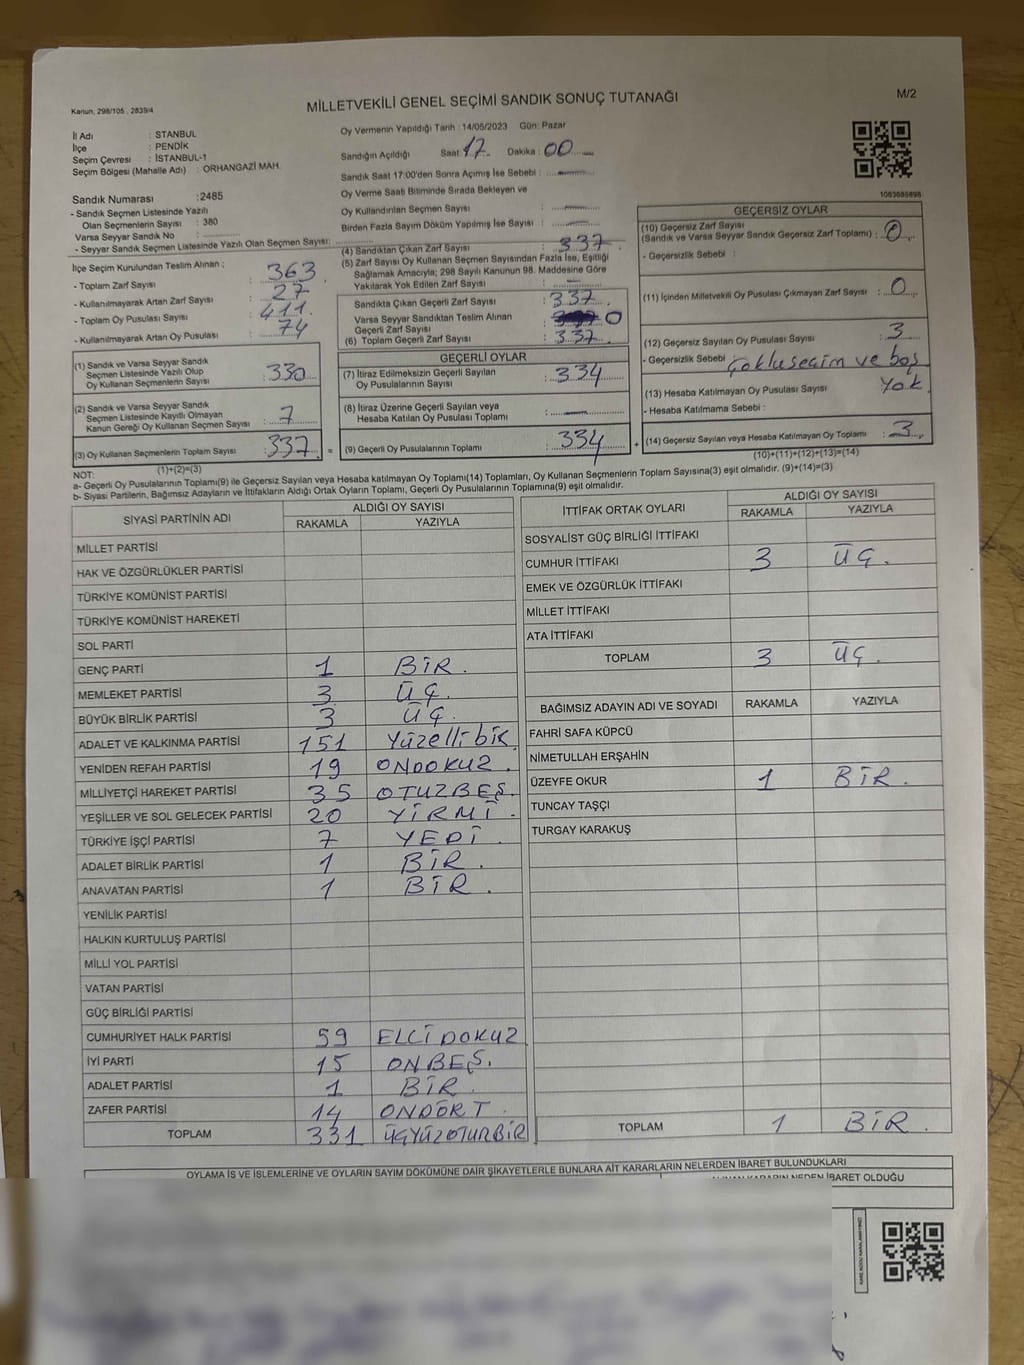 Kanun, 298/105 , 2839/4
MİLLETVEKİLİ GENEL SEÇİMİ SANDIK SONUÇ TUTANAĞI
M/2
İl Adı : STANBUL
İlçe : PENDİK
Seçim Çevresi : İSTANBUL-1
Seçim Bölgesi (Mahalle Adı) : ORHANGAZİ MAH.
Sandık Numarası :2485
- Sandık Seçmen Listesinde Yazılı
Olan Seçmenlerin Sayısı : 380
Varsa Seyyar Sandık No :
- Seyyar Sandık Seçmen Listesinde Yazılı Olan Seçmen Sayısı:
İlçe Seçim Kurulundan Teslim Alınan ;
- Toplam Zarf Sayısı : 363
- Kullanılmayarak Artan Zarf Sayısı : 27
- Toplam Oy Pusulası Sayısı : 411
- Kullanılmayarak Artan Oy Pusulası : 74
(1) Sandık ve Varsa Seyyar Sandık
Seçmen Listesinde Yazılı Olup
Oy Kullanan Seçmenlerin Sayısı : 330
(2) Sandık ve Varsa Seyyar Sandık
Seçmen Listesinde Kayıtlı Olmayan
Kanun Gereği Oy Kullanan Seçmen Sayısı : 7
(3) Oy Kullanan Seçmenlerin Toplam Sayısı : 337
(1)+(2)=(3)
Oy Vermenin Yapıldığı Tarih : 14/05/2023 Gün: Pazar
Sandığın Açıldığı Saat: 17 Dakika : 00
Sandık Saat 17:00'den Sonra Açılmış İse Sebebi :
Oy Verme Saati Bitiminde Sırada Bekleyen ve
Oy Kullandırılan Seçmen Sayısı :
Birden Fazla Sayım Döküm Yapılmış İse Sayısı :
(4) Sandıktan Çıkan Zarf Sayısı : 337
(5) Zarf Sayısı Oy Kullanan Seçmen Sayısından Fazla İse, Eşitliği
Sağlamak Amacıyla; 298 Sayılı Kanunun 98. Maddesine Göre
Yakılarak Yok Edilen Zarf Sayısı :
Sandıkta Çıkan Geçerli Zarf Sayısı : 337
Varsa Seyyar Sandıktan Teslim Alınan
Geçerli Zarf Sayısı : 0
(6) Toplam Geçerli Zarf Sayısı : 337
GEÇERLİ OYLAR
(7) İtiraz Edilmeksizin Geçerli Sayılan
Oy Pusulalarının Sayısı : 334
(8) İtiraz Üzerine Geçerli Sayılan veya
Hesaba Katılan Oy Pusulası Toplamı :
(9) Geçerli Oy Pusulalarının Toplamı : 334
1083685898
GEÇERSİZ OYLAR
(10) Geçersiz Zarf Sayısı
(Sandık ve Varsa Seyyar Sandık Geçersiz Zarf Toplamı) : 0
- Geçersizlik Sebebi :
(11) İçinden Milletvekili Oy Pusulası Çıkmayan Zarf Sayısı : 0
(12) Geçersiz Sayılan Oy Pusulası Sayısı : 3
- Geçersizlik Sebebi : çoklu seçim ve boş
(13) Hesaba Katılmayan Oy Pusulası Sayısı Yok
- Hesaba Katılmama Sebebi :
(14) Geçersiz Sayılan veya Hesaba Katılmayan Oy Toplamı : 3
(10)+(11)+(12)+(13)=(14)
NOT:
a- Geçerli Oy Pusulalarının Toplamı(9) ile Geçersiz Sayılan veya Hesaba katılmayan Oy Toplamı(14) Toplamları, Oy Kullanan Seçmenlerin Toplam Sayısına(3) eşit olmalıdır. (9)+(14)=(3)
b- Siyasi Partilerin, Bağımsız Adayların ve İttifakların Aldığı Ortak Oyların Toplamı, Geçerli Oy Pusulalarının Toplamına(9) eşit olmalıdır.
SİYASİ PARTİNİN ADI
ALDIĞI OY SAYISI
RAKAMLA YAZIYLA
MİLLET PARTİSİ
HAK VE ÖZGÜRLÜKLER PARTİSİ
TÜRKİYE KOMÜNİST PARTİSİ
TÜRKİYE KOMÜNİST HAREKETİ
SOL PARTİ
GENÇ PARTİ 1 BİR.
MEMLEKET PARTİSİ 3 ÜÇ.
BÜYÜK BİRLİK PARTİSİ 3 ÜÇ.
ADALET VE KALKINMA PARTİSİ 151 Yüzelli bir
YENİDEN REFAH PARTİSİ 19 ONDOKUZ.
MİLLİYETÇİ HAREKET PARTİSİ 35 OTUZBEŞ.
YEŞİLLER VE SOL GELECEK PARTİSİ 20 YİRMİ.
TÜRKİYE İŞÇİ PARTİSİ 7 YEDİ.
ADALET BİRLİK PARTİSİ 1 BİR.
ANAVATAN PARTİSİ 1 BİR.
YENİLİK PARTİSİ
HALKIN KURTULUŞ PARTİSİ
MİLLİ YOL PARTİSİ
VATAN PARTİSİ
GÜÇ BİRLİĞİ PARTİSİ
CUMHURİYET HALK PARTİSİ 59 ELLİDOKUZ
İYİ PARTİ 15 ONBEŞ.
ADALET PARTİSİ 1 BİR
ZAFER PARTİSİ 14 ONDÖRT.
TOPLAM 331 ÜÇYÜZOTUZBİR
İTTİFAK ORTAK OYLARI
ALDIĞI OY SAYISI
RAKAMLA YAZIYLA
SOSYALİST GÜÇ BİRLİĞİ İTTİFAKI
CUMHUR İTTİFAKI 3 ÜÇ.
EMEK VE ÖZGÜRLÜK İTTİFAKI
MİLLET İTTİFAKI
ATA İTTİFAKI
TOPLAM 3 ÜÇ.
BAĞIMSIZ ADAYIN ADI VE SOYADI RAKAMLA YAZIYLA
FAHRİ SAFA KÜPCÜ
NİMETULLAH ERŞAHİN
ÜZEYFE OKUR 1 BİR.
TUNCAY TAŞÇI
TURGAY KARAKUŞ
TOPLAM 1 BİR.
OYLAMA İŞ VE İŞLEMLERİNE VE OYLARIN SAYIM DÖKÜMÜNE DAİR ŞİKAYETLERLE BUNLARA AİT KARARLARIN NELERDEN İBARET BULUNDUKLARI
ALINAN KARARIN NEDEN İBARET OLDUĞU